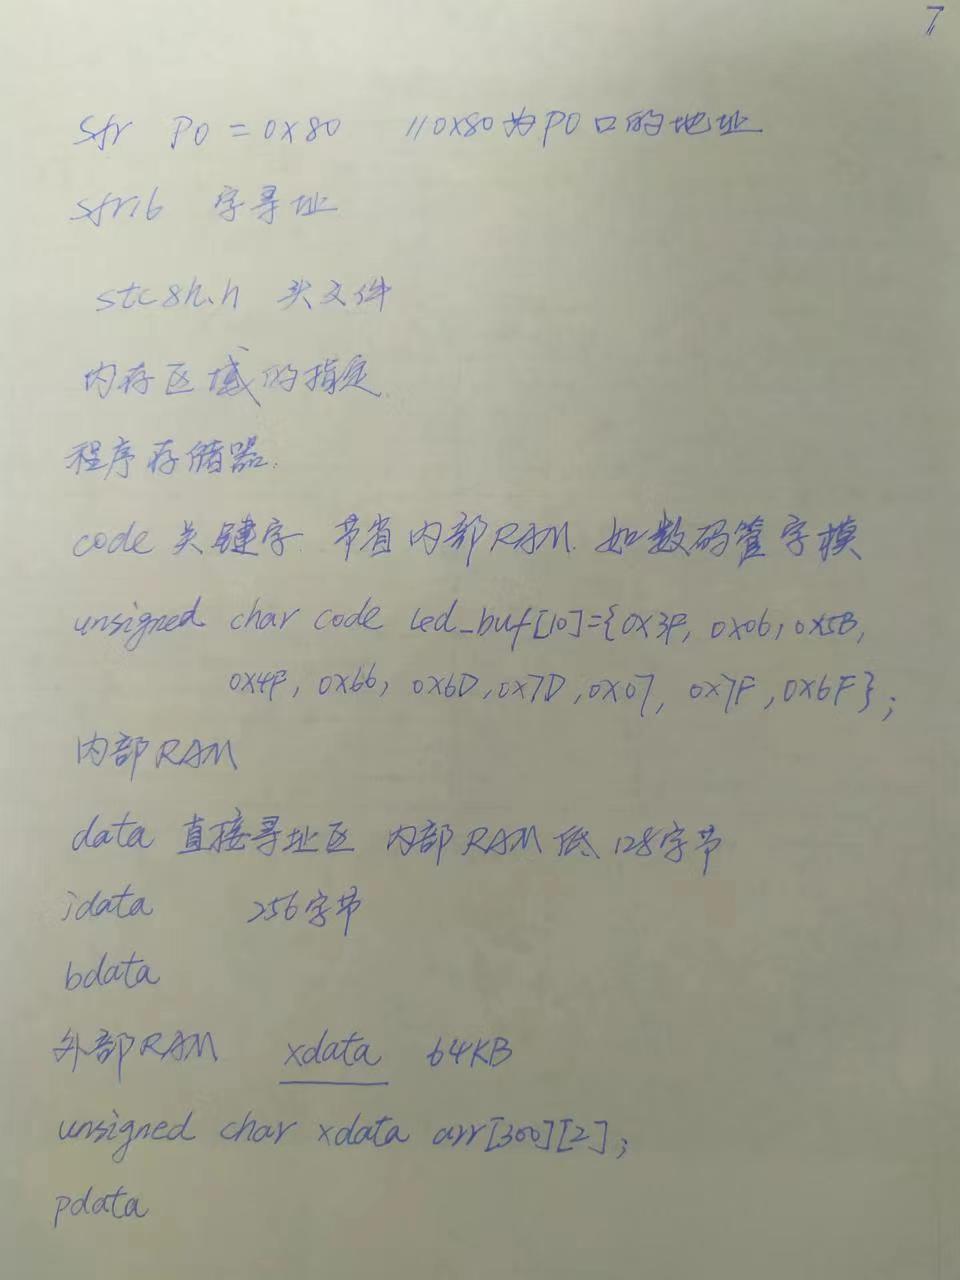 7
sfr P0 = 0x80 //0x80为P0口的地址
sfr16 字寻址
stc8h.h 头文件
内存区域的指定
程序存储器.
code 关键字. 节省内部RAM. 如数码管字模
unsigned char code led_buf[10]={0x3F, 0x06, 0x5B,
0x4F, 0x66, 0x6D, 0x7D, 0x07, 0x7F, 0x6F};
内部RAM
data 直接寻址区 内部RAM低128字节
idata 256字节
bdata
外部RAM xdata 64KB
unsigned char xdata arr[300][2];
pdata